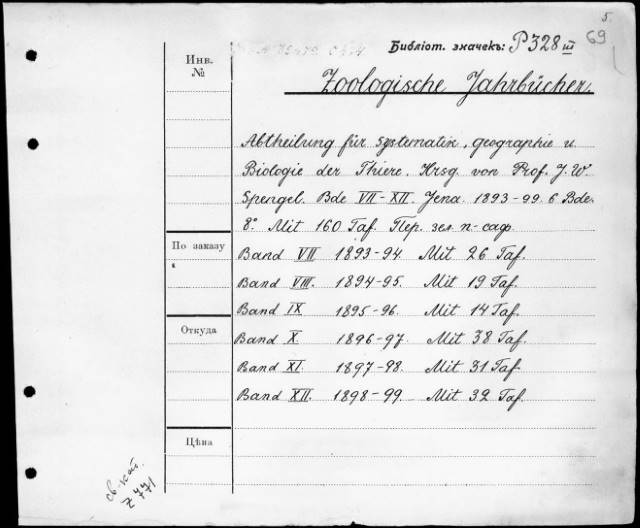 5.
Библіот. значекъ: P 328 III
69
Инв.
№
Zoologische Jahrbücher.
Abtheilung für Systematik, geographie u.
Biologie der Thiere. Hrsg. von Prof. J. W.
Spengel. Bde VII-XII. Jena. 1893-99. 6 Bde.
8°. Mit 160 Taf. Пер. зел. п-саф.
По заказу
Band VII 1893-94. Mit 26 Taf.
Band VIII. 1894-95. Mit 19 Taf.
Band IX 1895-96. Mit 14 Taf.
Откуда
Band X. 1896-97. Mit 38 Taf.
Band XI. 1897-98. Mit 31 Taf.
Band XII. 1898-99. Mit 32 Taf.
Цѣна
св. кат.
Z 771